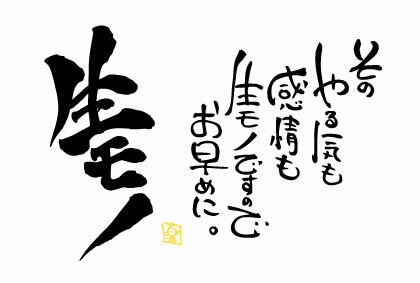 その
やる気も
感情も
生モノですので
お早めに。
生モノ